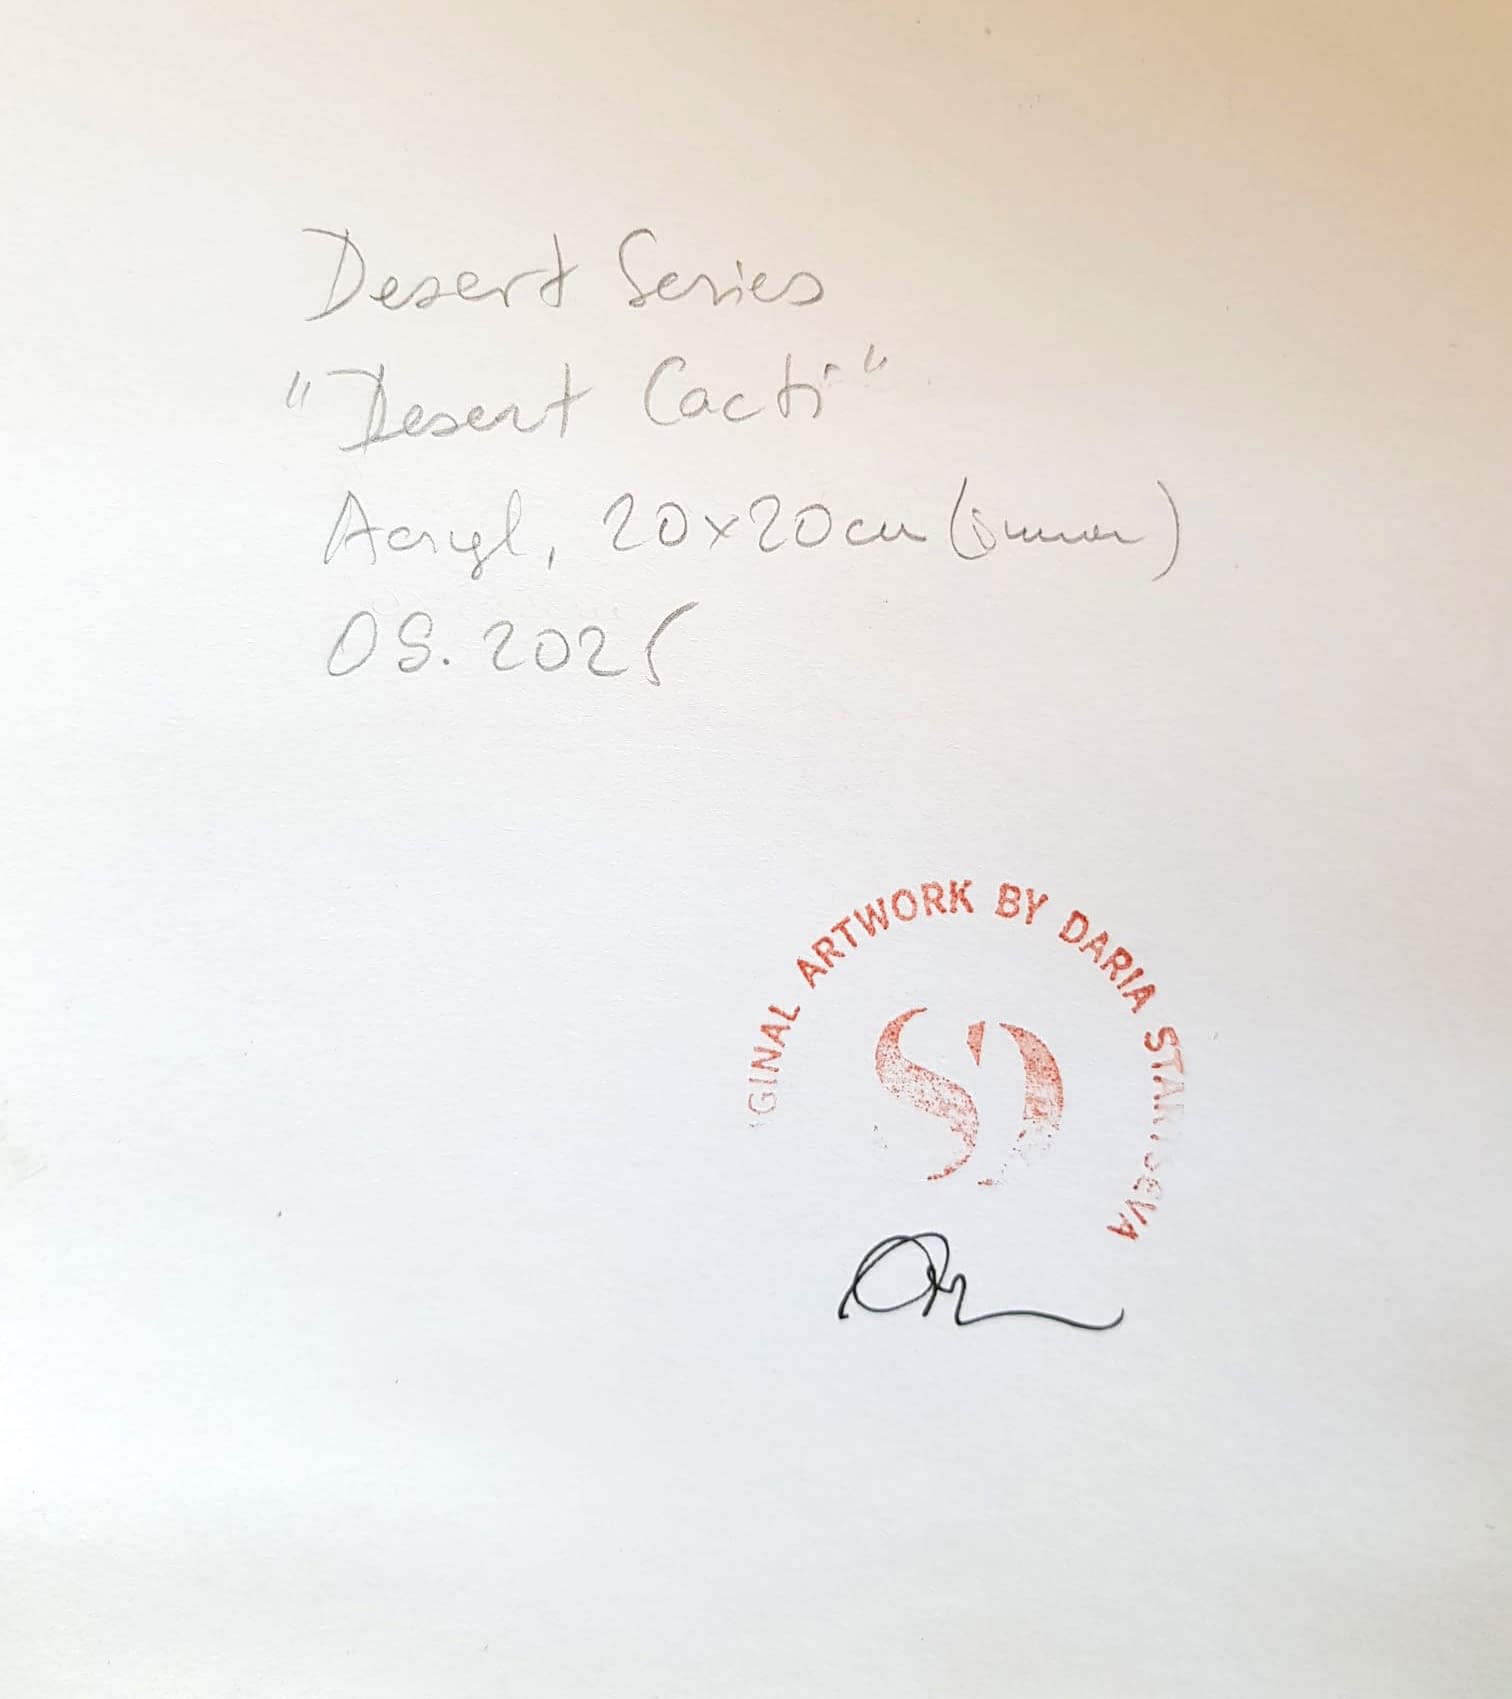 Desert Series
"Desert Cacti"
Acryl, 20x20cm (inner)
08.2025
GINAL ARTWORK BY DARIA STARTSEVA
SD